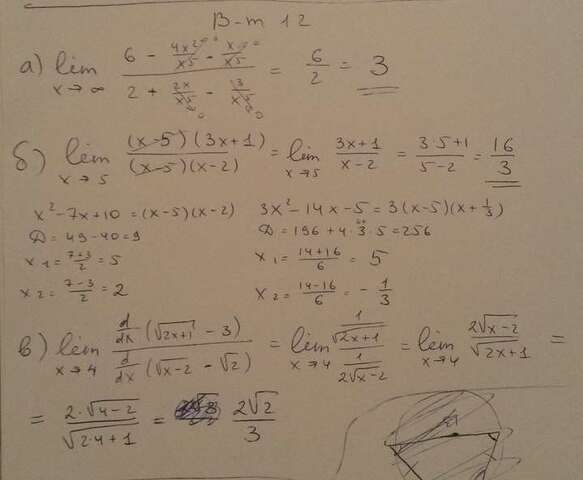 В-т 12
а) lim x→∞ (6 - 4x²/x⁵ - x/x⁵) / (2 + 2x/x⁵ - 13/x⁵) = 6/2 = 3
б) lim x→5 (x-5)(3x+1) / (x-5)(x-2) = lim x→5 (3x+1)/(x-2) = (3·5+1)/(5-2) = 16/3
x²-7x+10=(x-5)(x-2) 3x²-14x-5=3(x-5)(x+1/3)
D=49-40=9 D=196+4·3·5=256
x₁=(7+3)/2=5 x₁=(14+16)/6=5
x₂=(7-3)/2=2 x₂=(14-16)/6=-1/3
в) lim x→4 (d/dx(√2x+1 - 3)) / (d/dx(√x-2 - √2)) = lim x→4 (1/√2x+1) / (1/2√x-2) = lim x→4 2√x-2 / √2x+1 =
= 2·√4-2 / √2·4+1 = 2√2/3